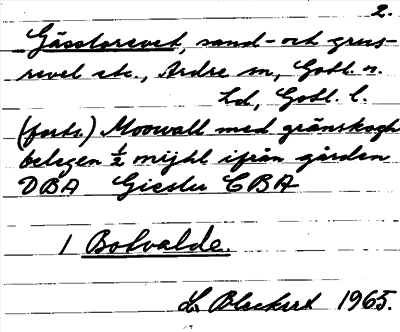 2.
Gässtorevet, sand- och grus-
revel etc., Ardre sn, Gotl. n.
hd, Gotl. l.
(forts.) Moowall med gränskogh
belegen ½ mijhl ifrån gården
DBA Gieslu CBA
1 Botvalde.
L Bleckert 1965.